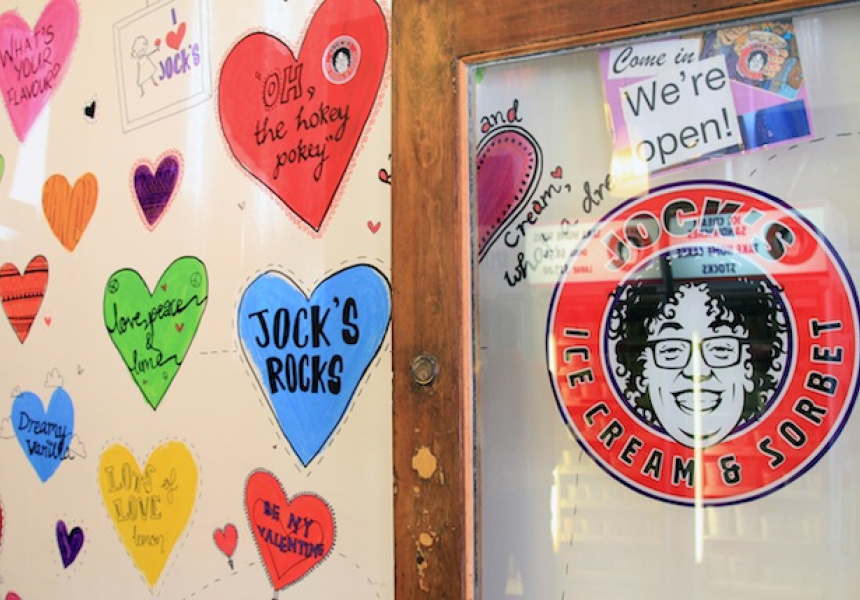 WHAT'S
YOUR
FLAVOUR?
I
JOCK'S
"OH,
the hokey
pokey"
love, peace
&
lime
JOCK'S
ROCKS
Dreamy
Vanilla
LOTS of
LOVE
lemon
BE MY
VALENTINE
Come in
We're
open!
and
cream,
what a dre
JOCK'S
ICE CREAM & SORBET
ICE CREAM
SANDWICHES
TAKE HOME CAKES
STOCKS